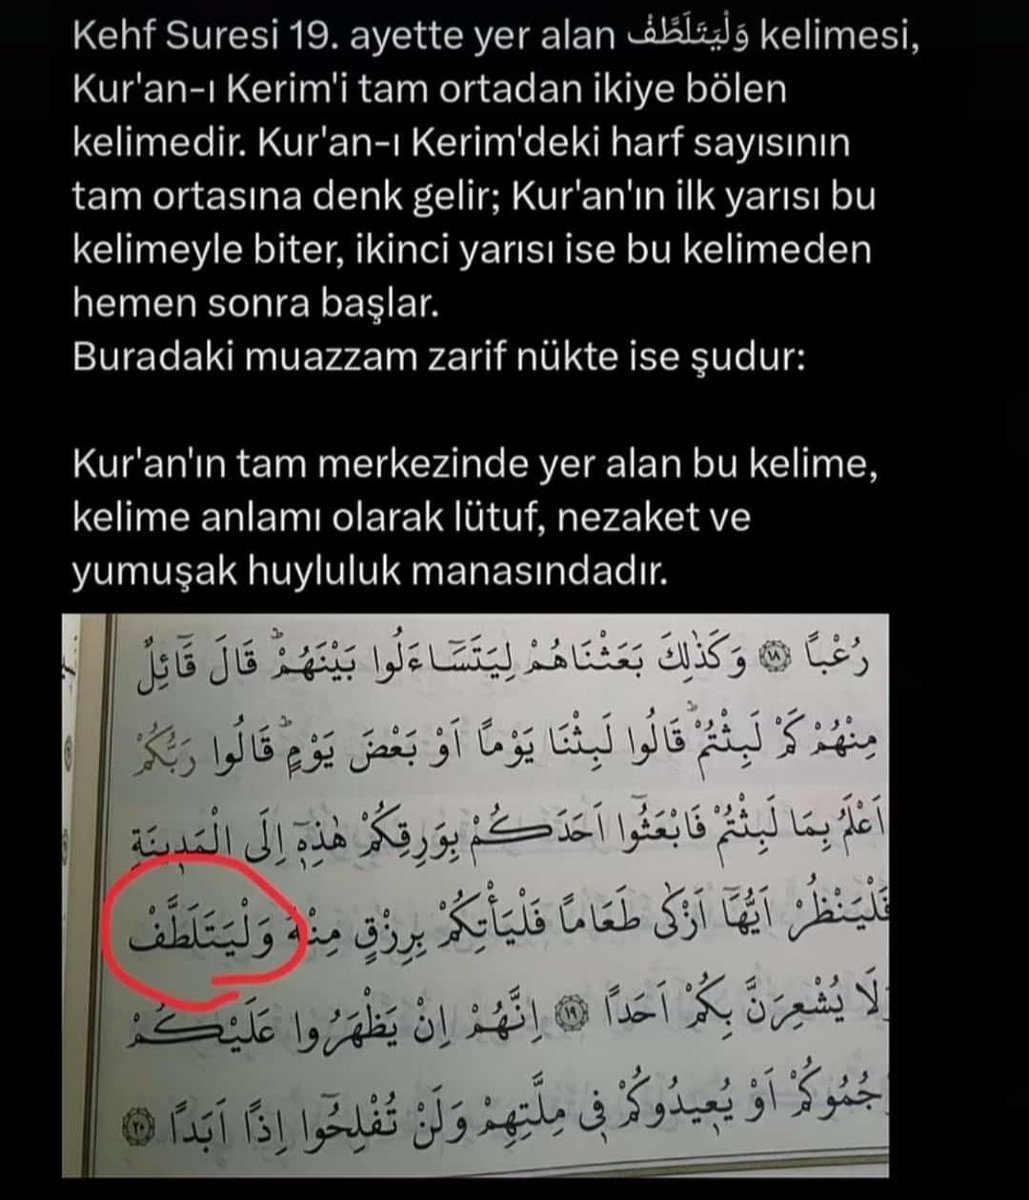 Kehf Suresi 19. ayette yer alan وَلْيَتَلَطَّفْ kelimesi,
Kur'an-ı Kerim'i tam ortadan ikiye bölen
kelimedir. Kur'an-ı Kerim'deki harf sayısının
tam ortasına denk gelir; Kur'an'ın ilk yarısı bu
kelimeyle biter, ikinci yarısı ise bu kelimeden
hemen sonra başlar.
Buradaki muazzam zarif nükte ise şudur:
Kur'an'ın tam merkezinde yer alan bu kelime,
kelime anlamı olarak lütuf, nezaket ve
yumuşak huyluluk manasındadır.
رُعْباً ﴿١٨﴾ وَكَذٰلِكَ بَعَثْنَاهُمْ لِيَتَسَٓاءَلُوا بَيْنَهُمْۜ قَالَ قَٓائِلٌ
مِنْهُمْ كَمْ لَبِثْتُمْۜ قَالُوا لَبِثْنَا يَوْماً اَوْ بَعْضَ يَوْمٍۜ قَالُوا رَبُّكُمْ
اَعْلَمُ بِمَا لَبِثْتُمْ فَابْعَثُٓوا اَحَدَكُمْ بِوَرِقِكُمْ هٰذِهٖٓ اِلَى الْمَدٖينَةِ
فَلْيَنْظُرْ اَيُّهَٓا اَزْكٰى طَعَاماً فَلْيَأْتِكُمْ بِرِزْقٍ مِنْهُ وَلْيَتَلَطَّفْ
لَا يُشْعِرَنَّ بِكُمْ اَحَداً ﴿١٩﴾ اِنَّهُمْ اِنْ يَظْهَرُوا عَلَيْكُمْ
جُمُوكُمْ اَوْ يُعٖيدُوكُمْ فٖي مِلَّتِهِمْ وَلَنْ تُفْلِحُٓوا اِذًا اَبَدًا ﴿٢٠﴾